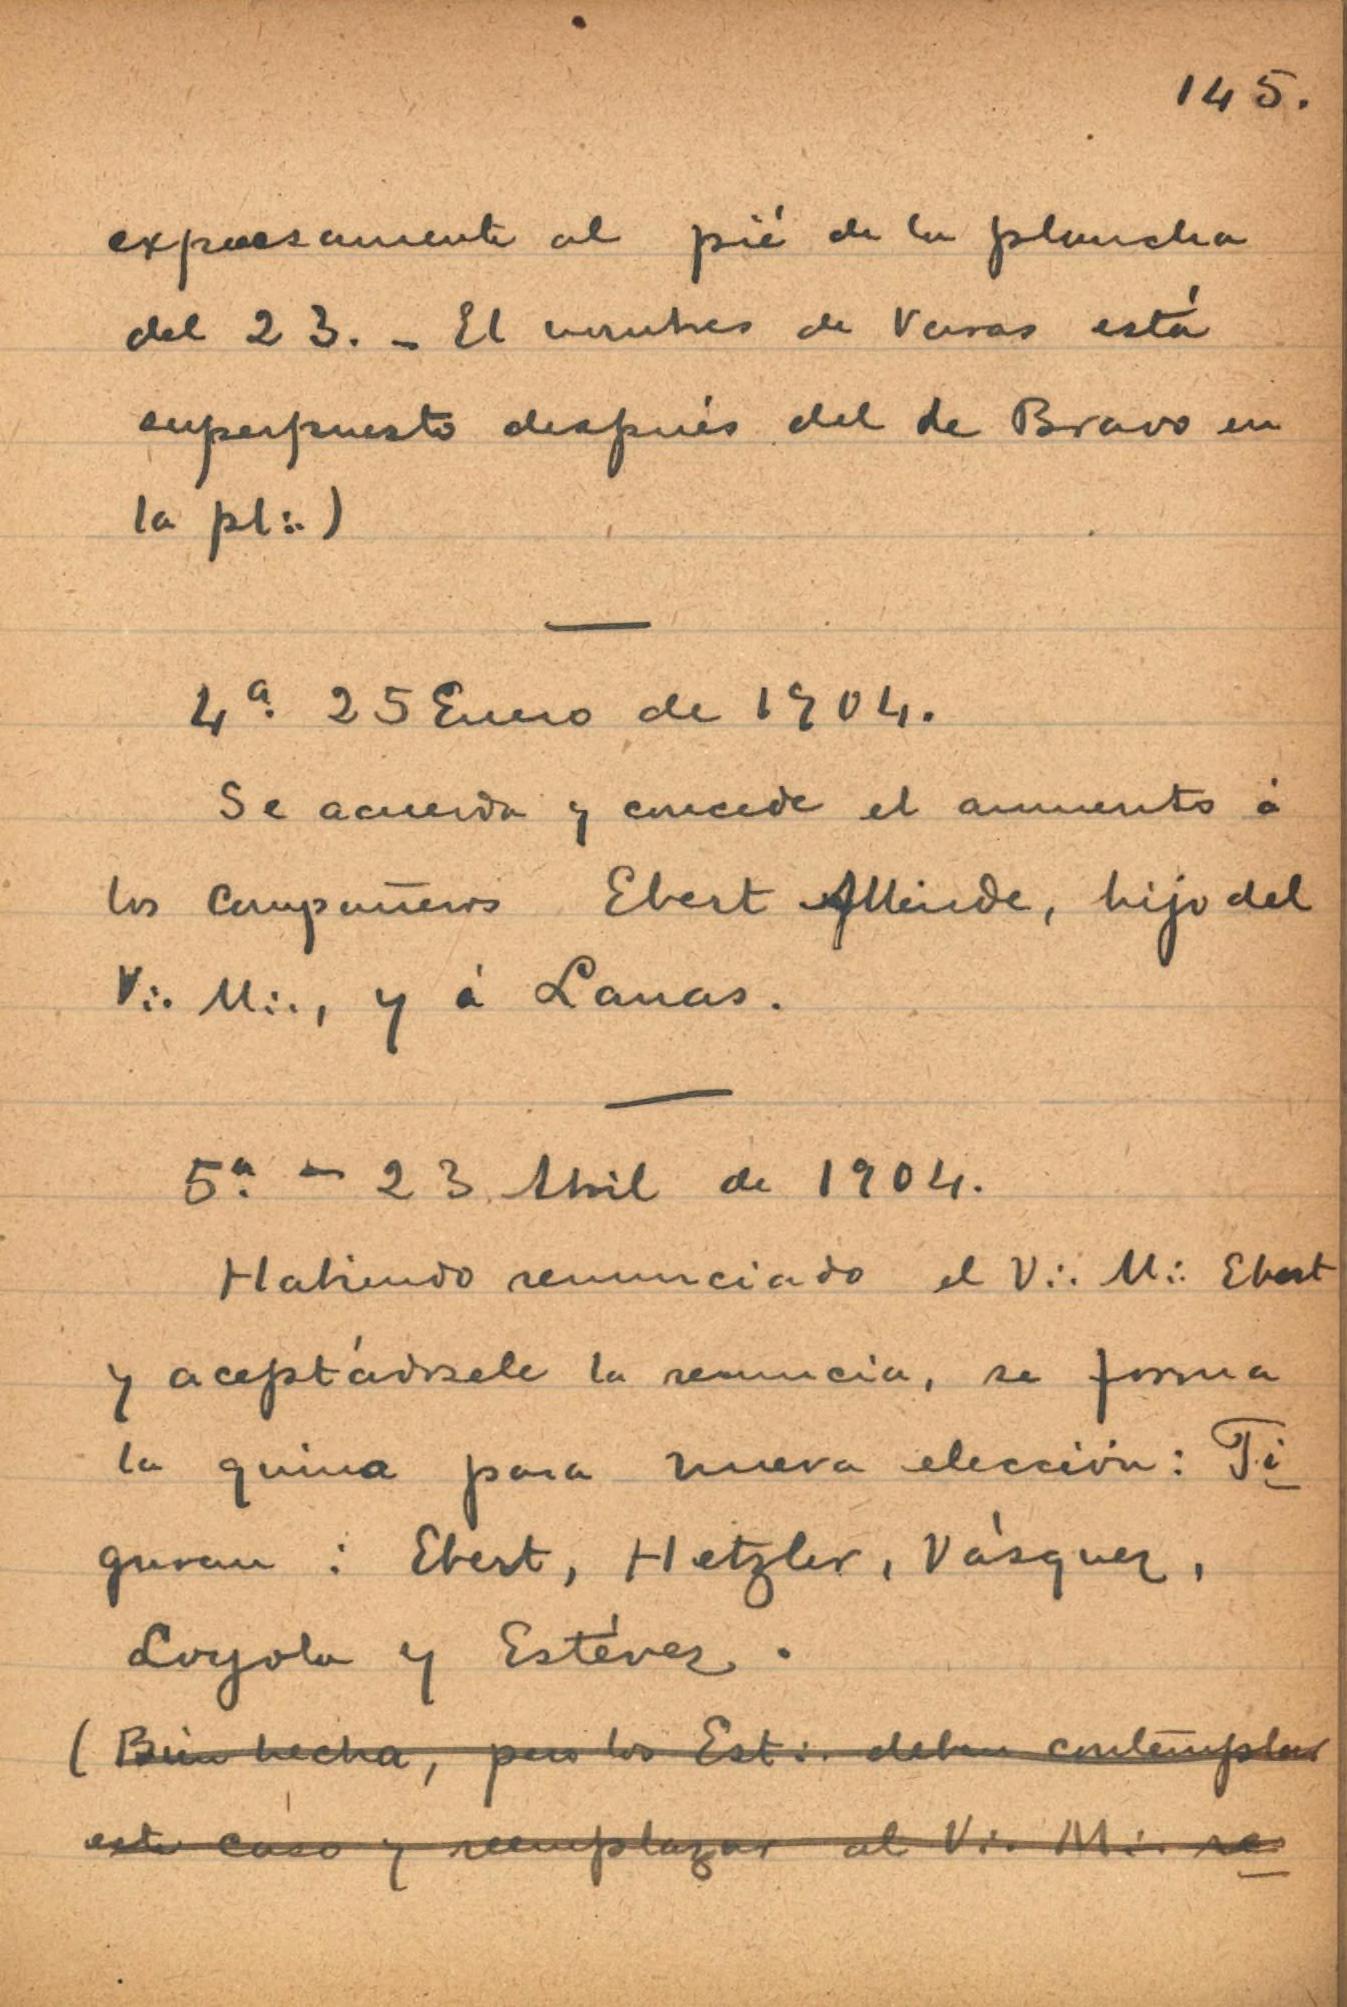 145.
expresamente al pié de la plancha
del 23. - El nombres de Varas está
superpuesto después del de Bravo en
la pl∴)
4ª. 25 Enero de 1904.
Se acuerda y concede el aumento á
los compañeros Ebert Allende, hijo del
V∴ M∴, y á Lanas.
5ª. - 23 Abril de 1904.
Habiendo renunciado el V∴ M∴ Ebert
y aceptádosele la renuncia, se forma
la quina para nueva elección: Fi
guran : Ebert, Hetzler, Vásquez,
Loyola y Estévez.
(Bien hecha, pero los Est∴ deben contemplar
este caso y reemplazar al V∴ M∴ re